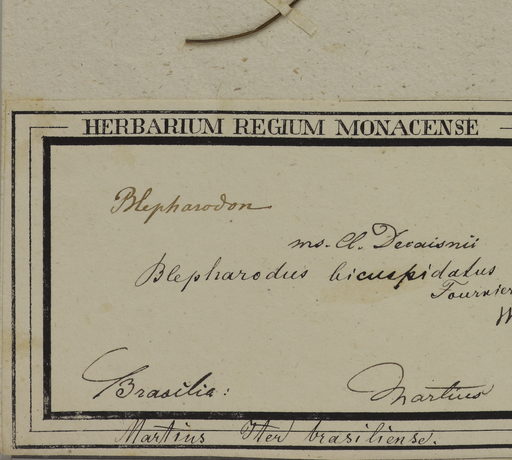 HERBARIUM REGIUM MONACENSE
Blepharodon
ms. Cl. Decaisnii
Blepharodus bicuspidatus
Fournier
W
Brasilia:
Martius
Martius Iter brasiliense.